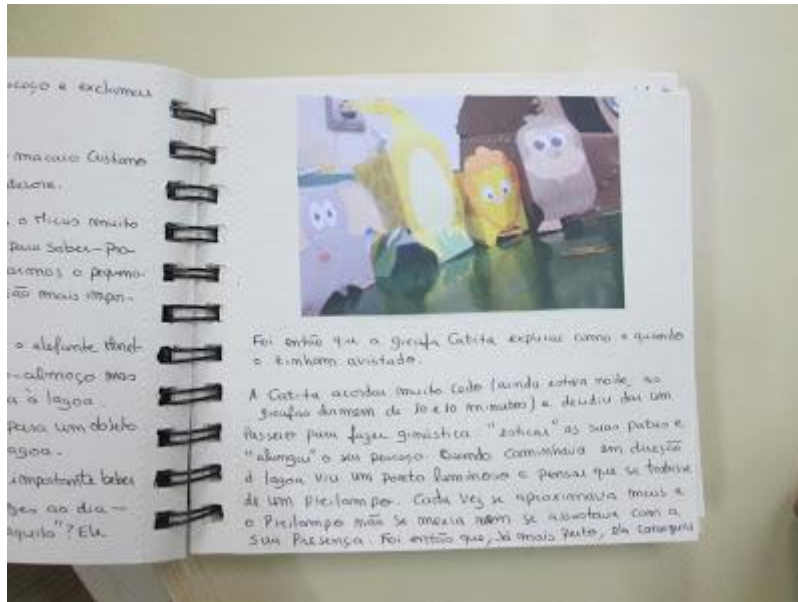 pescoço e exclamou
macaco Custamo
, o Micas muito
para saber-Pro-
o pequeno
ão mais impor-
o elefante
-almoço mas
a à lagoa.
para um objeto
agoa.
importante beber
ao dia-
aquilo"? Ele
Foi então que a girafa Catita explicou como e quando
o tinham avistado.
A Catita acordou muito cedo (ainda estava noite, as
girafas dormem de 10 e 10 minutos) e decidiu dar um
Passeio para fazer ginástica "esticar" as suas patas e
"alongar" o seu pescoço. Quando caminhava em direção
à lagoa viu um ponto luminoso e pensou que se tratava
de um Pirilampo. Cada vez se aproximava mais e
o Pirilampo não se mexia nem se assustava com a
sua Presença. Foi então que, já mais perto, ela conseguiu